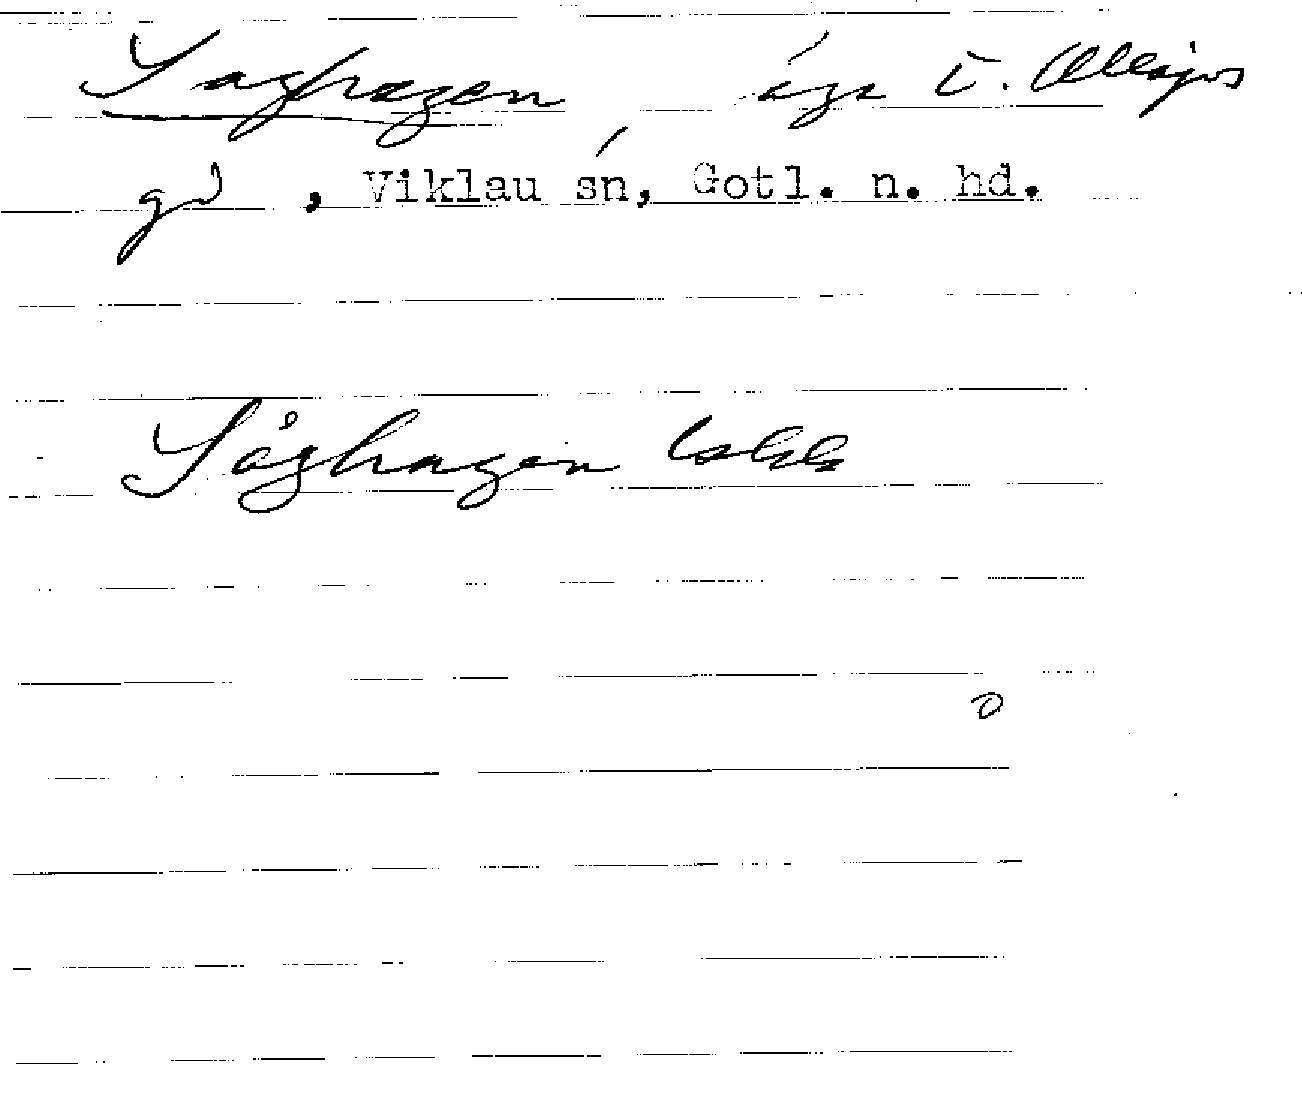 Saghagen äga t. Allajvs
gd, Viklau sn, Gotl. n. hd.
Såghagen